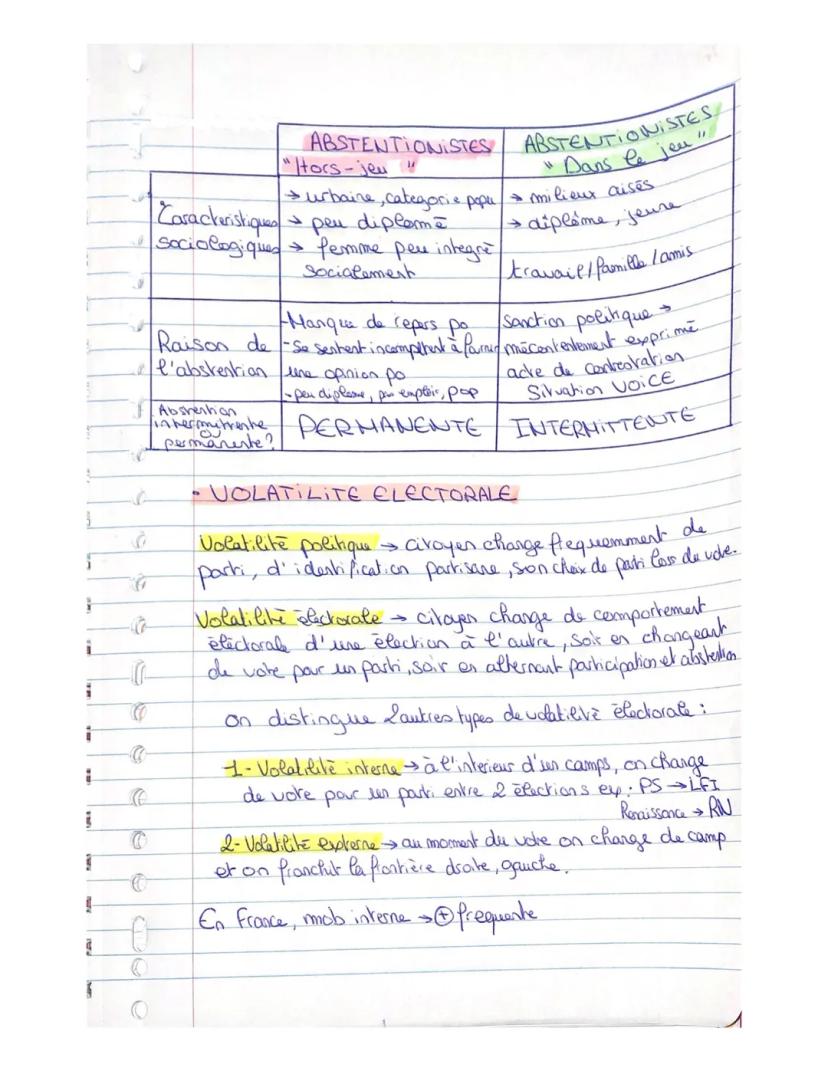 ABSTENTIONISTES
"Hors-jeu"
ABSTENTIONISTES
"Dans le jeu"
Caracteristiques
sociologiques
→ urbaine, categorie popu
→ peu diplomé
→ femme peu integré
socialement
→ milieux aisés
→ diplômé, jeune
travail/famille/amis
Raison de
l'abstention
-Manque de repers po
-Se sentent incompétent à fournir
une opinion po
-peu diplome, peu emploir, pop
Sanction politique →
mécontentement exprimé
acte de contestation
Situation VOICE
Abstention
intermittente
ou
permanente?
PERMANENTE
INTERMITTENTE
• VOLATILITE ELECTORALE
Volatilité politique → citoyen change frequemment de
parti, d'identification partisane, son choix de parti lors du vote.
Volatilité électorale → citoyen change de comportement
éléctorale d'une élection à l'autre, soit en changeant
de vote pour un parti, soit en alternant participation et abstention
on distingue 2 autres types de volatilité électorale :
1- Volatilité interne → à l'interieur d'un camps, on change
de vote pour un parti entre 2 élections ex : PS → LFI
Renaissance → RN
2- Volatilité externe → au moment du vote on change de camp
et on franchit la frontière droite, gauche.
En France, mob interne → + frequente